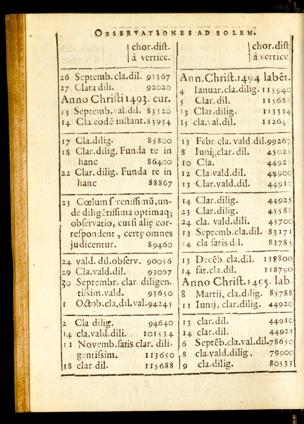 OBSERVATIONES AD SOLEM.
chor.dist.
à vertice.
26 Septemb.cla.dil. 91367
27 Clara dil. 92020
Anno Christi 1493. cur.
13 Septemb.val.dil. 83320
14 Cla.eodē instant. 83934
17 Cla.dilig. 85800
18 Clar.dilig. Funda te in
hanc 86400
22 Clar.dilig. Funda te in
hanc 88867
23 Cœlum serenissimū, un-
de diligētissima optimaq;
observatio, cui si aliæ cor-
respondent, certę omnes
judicentur. 89460
24 vald. dil. observ. 90056
29 Cla.vald.dil. 93067
30 Septembr. clar. diligen-
tissim.vald. 93650
1 Octob.cla.dil.val. 94245
2 Cla dilig. 94640
14 cla.val.dili. 101534
11 Novemb.satis clar. dili-
gentissim. 113650
18 clar dil. 115688
chor.dist.
à vertice.
Ann.Christ.1494 labēt.
4 Ianuar.cla.dilig. 115940
5 Clar.dil. 115682
13 Clar.dilig. 113334
15 cla.val.dil.
13 Febr cla.vald dil. 99267
8 Iunij,clar.dil. 45025
10 Cla.
12 Cla.vald.dil. 44900
13 Clar.vald.dil. 44910
14 Clar.dilig. 44925
23 Clar.dilig. 45581
24 cla.valdedil. 45700
13 Septemb.cla.dil. 83171
14 cla satis dil. 83785
13 Decēb.cla.dil.
14 sat.cla.dil. 118780
Anno Christ.1495. lab.
8 Martij, cla.dil. 85788
11 Iunij, clar.dilig. 44920
13 clar.dil. 44910
14 clar.dil. 44925
6 Septēb.cla.val.dil. 78650
8 cla.vald.dilig. 79900
9 cla.dilig. 80533